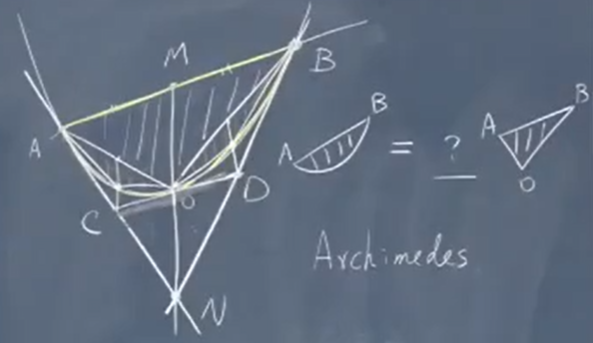 M
B
A
C
O
D
N
A B = ? A B O
Archimedes